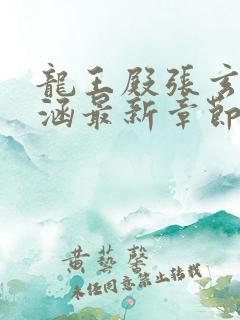 龍王殿張玄
涵最新章節
黄藝馨
未经同意禁止转载